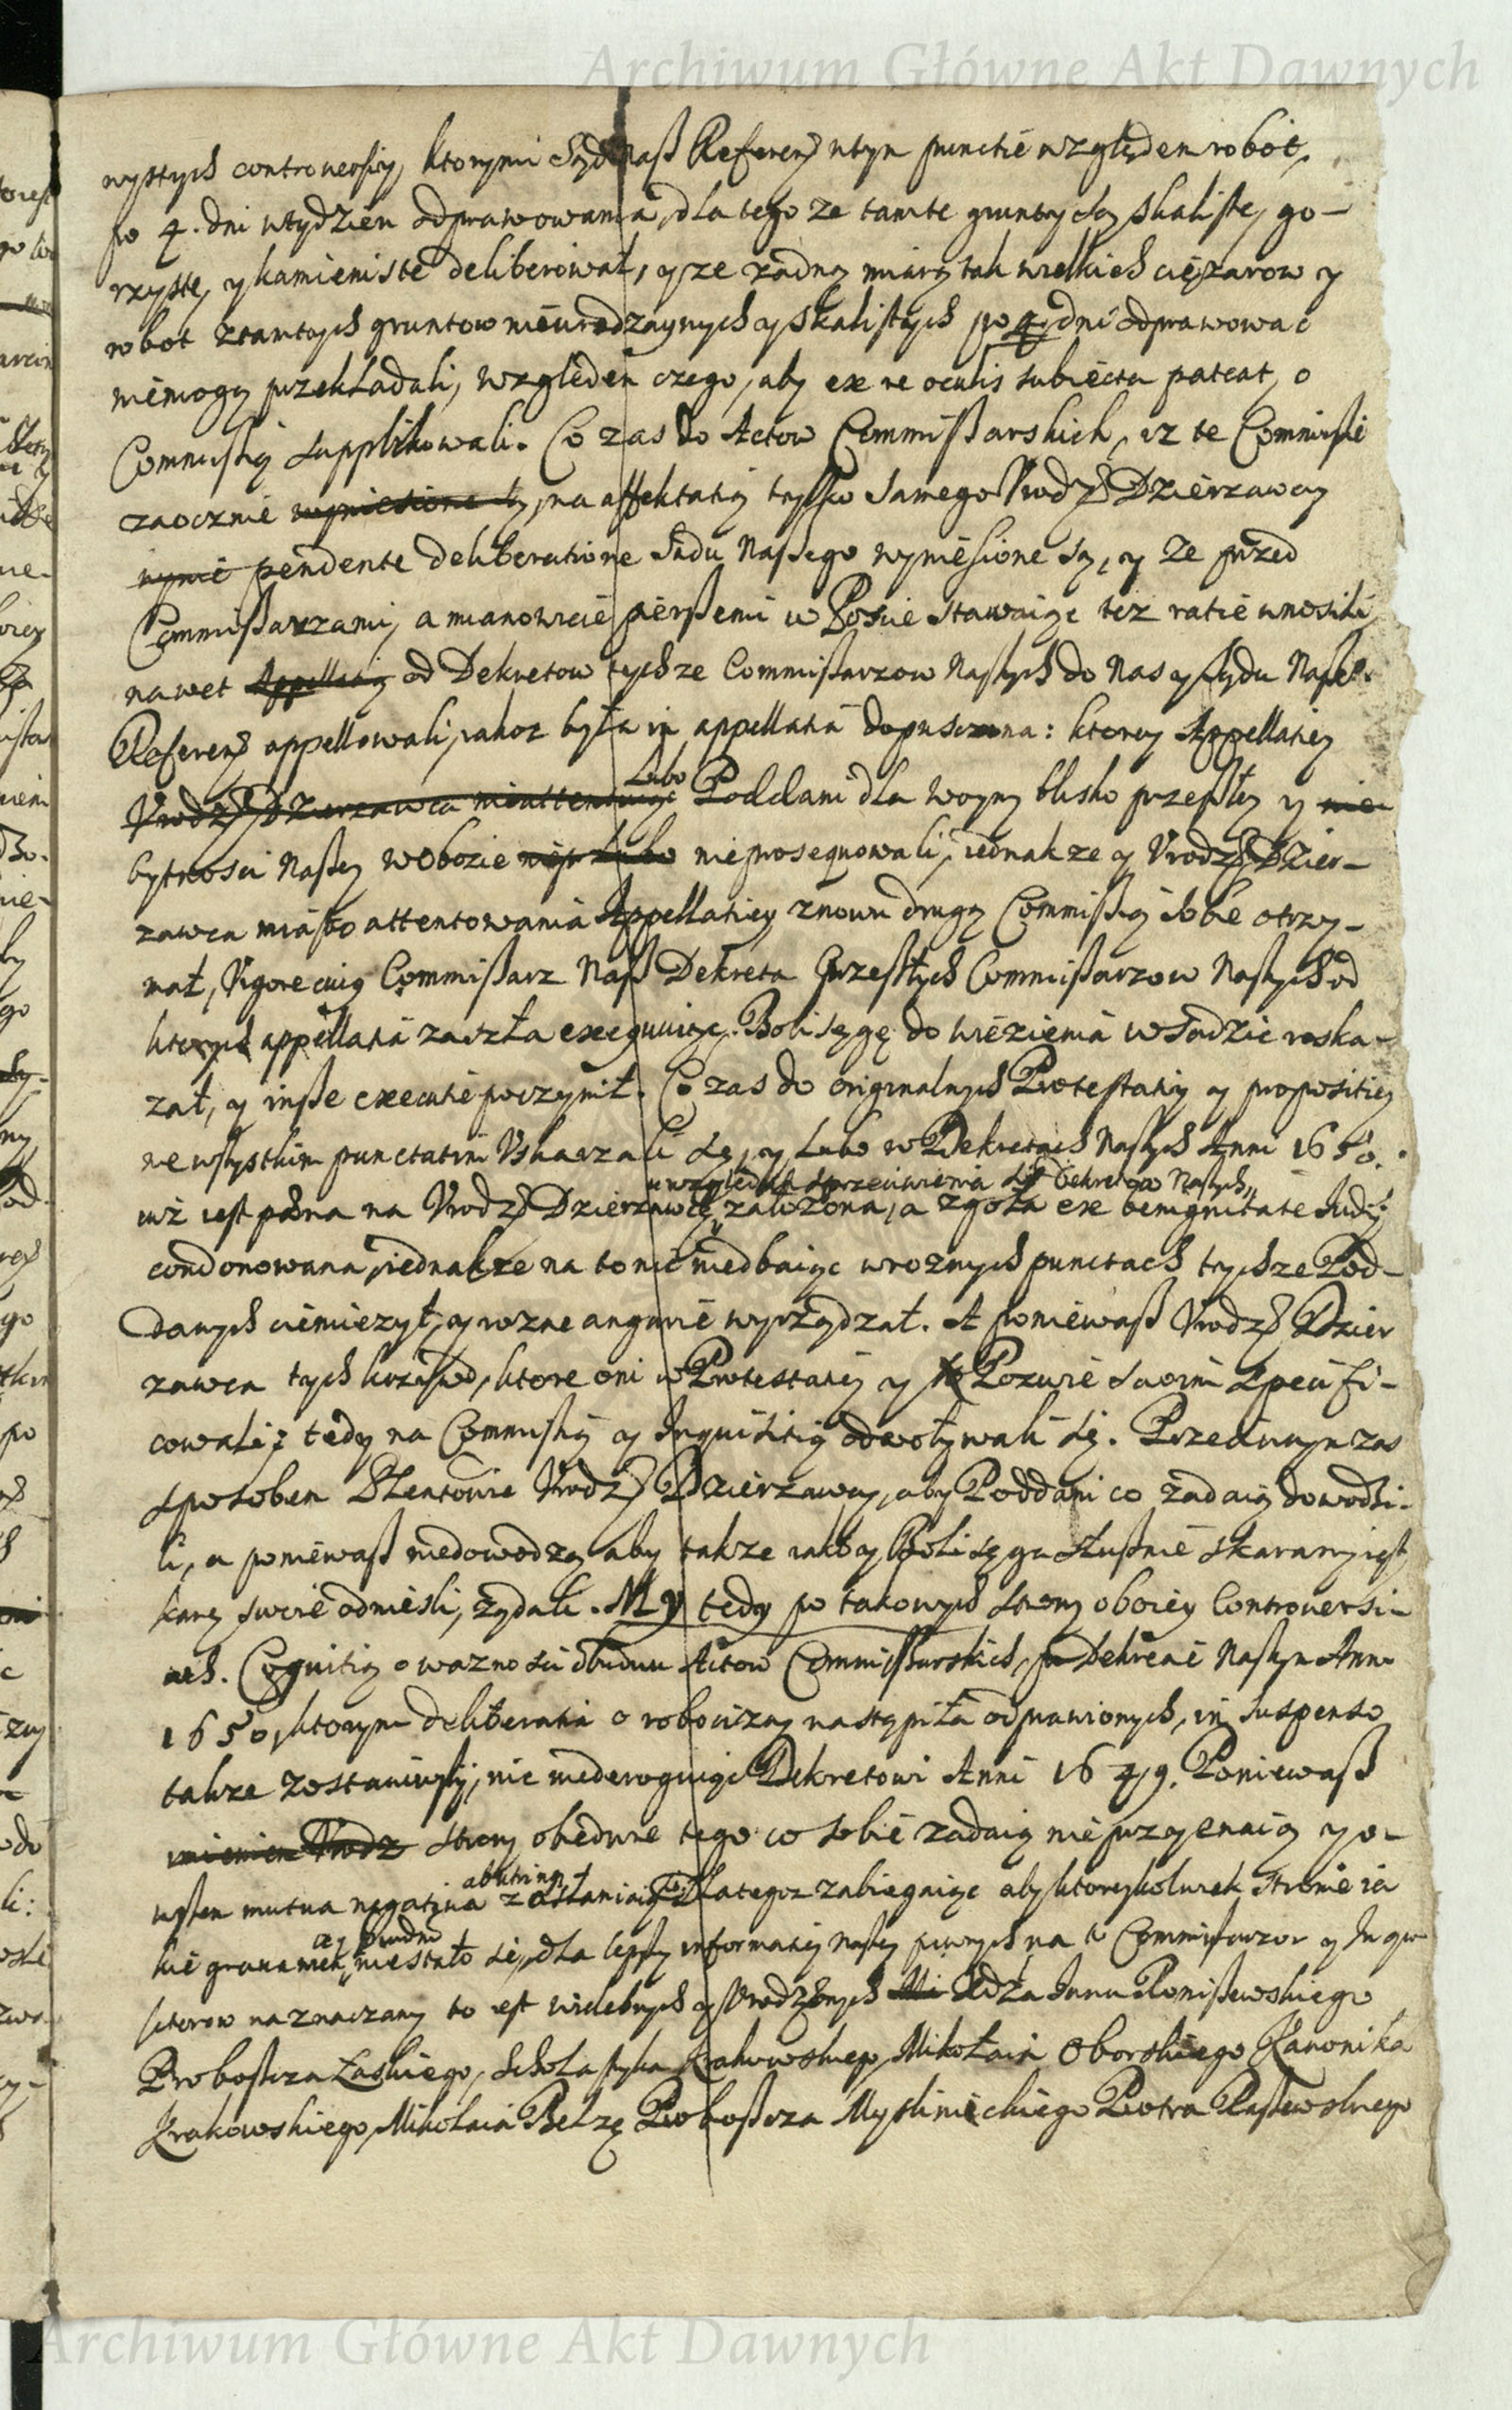 Archiwum Główne Akt Dawnych
wystych controwersiy, ktorymi Sąd Nasz Referen. w tym punctie względem robot,
po 4. dni w tydzien odprawowania, dla tego ze tamte grunty są skaliste, go-
rzyste, y kamieniste deliberował, y ze żadną miarą tak wielkich ciężarow y
robot z tamtych gruntow nieurodzaynych y skalistych po 4. dni odprawować
niemogą przekładali, względem czego, aby ex re oculis subiecta pateat, o
Commissią supplikowali. Co zas do Actow Commissarskich, iz te Commissie
zaocznie wyniesione są, na affektatią tylko samego Urodz. Dzierzawcy
wynie pendente deliberatione Sądu Naszego wyniesione są, y ze przed
Commissarzami, a mianowicie pierszemi w Posie stawaiąc tez ratie wnosili,
nawet Appellatią od Dekretow tychze Commissarzow Naszych do Nas y Sądu Nasze.
Referen. appellowali, iakoz była im appellatia dopuszczona: ktorey Appellatiey
Urodz. Dzierzawca nieattentuiąc Lubo Poddani dla woyny blisko przeszłey y nie
bytnosci Naszey w Obozie nieprosequowali, iednakze y Urodz. Dzier-
zawca miasto attentowania Appellatiey znowu drugą Commissią sobie otrzy-
mał, Vigore cuius Commissarz Nasz Dekreta Przeszłych Commissarzow Naszych od
ktorych appellatia zaszła exequuiąc. Bolisęgę do więzienia wsadzić roska-
zał, y insze executie poczynił. Co zas do originalnych Protestatiy y propositiey
we wszystkim punctatim Uskarzali się, y Lubo w Dekretach Naszych Anni 1650.
u względem sprzeciwienia się Dekretow Naszych
iuż iest pœna na Urodz. Dzierzawcę założona, a zgoła ex benignitate Iudicij
condonowana, iednakze na to nic niedbaiąc w roznych punctach tychze Pod-
danych ciemiezył, y rozne angarie wyrządzał. A poniewasz Urodz. Dzier
zawca tych krzywd, ktore oni w Protestatiey y w Pozwie swoim Specifi-
cowali, tedy na Commissią y Inquisitią odwoływali się. Przeciwnym zas
sposobem Plentowie Urodz. Dzierzawcy, aby Poddani co zadaią dowodzi-
li, a poniewasz niedowodzą, aby takze iako y Bolisęga słusznie skarany iest
karę swoie odniesli, żądali. My tedy po takowych strony oboiey Controversi-
ach. Cognitią o waznosci obudwu Actow Commissarskich, po Dekrecie Naszym Anni
1650, ktorym deliberatia o robocizny nastąpiła odprawionych, in suspenso
takze zostawiwszy, nic niederoguiąc Dekretowi Anni 1649. Poniewasz
imieniem Urodz strony obiedwie tego co sobie zadaią nieprzyznaią y o-
abutrinq
wszem mutua negativa zastaniaią się Dlatego zabiegaiąc aby ktoreykolwiek stronie ia
kie gravamen, niestało się, dla lepszey informatiey naszey pewnych na to Commissarzow y Inqui
sitorow naznaczamy to iest wielebnych y Urodzonych Mi Xdza Jana Poniszewskiego
Proboszcza Łaskiego, Scholastyka Krakowskiego, Mikołaia Oborskiego Kanonika
Krakowskiego, Mikołaia Belzę Proboszcza Myslimickiego Piotra Paszewskiego
Archiwum Główne Akt Dawnych